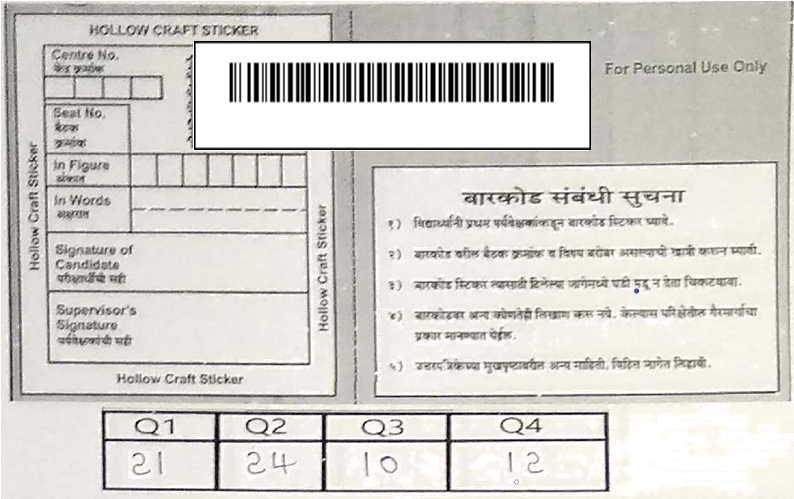 HOLLOW CRAFT STICKER
Centre No.
केंद्र क्रमांक
Seat No.
बैठक
क्रमांक
In Figure
अंकात
In Words
अक्षरात
Signature of
Candidate
परीक्षार्थीची सही
Supervisor's
Signature
पर्यवेक्षकांची सही
Hollow Craft Sticker
Hollow Craft Sticker
Hollow Craft Sticker
For Personal Use Only
बारकोड संबंधी सुचना
१) विद्यार्थ्यांनी प्रथम पर्यवेक्षकांकडून बारकोड स्टिकर घ्यावे.
२) बारकोड वरील बैठक क्रमांक व विषय बरोबर असल्याची खात्री करून घ्यावी.
३) बारकोड स्टिकर त्यासाठी दिलेल्या जागेमध्ये घडी पडू न देता चिकटवावा.
४) बारकोडवर अन्य कोणतेही लिखाण करू नये. केल्यास परिक्षेतील गैरमार्गाचा
प्रकार मानण्यात येईल.
५) उत्तरपत्रिकेच्या मुखपृष्ठावरील अन्य माहिती, विहित जागेत लिहावी.
Q1 Q2 Q3 Q4
21 24 10 12